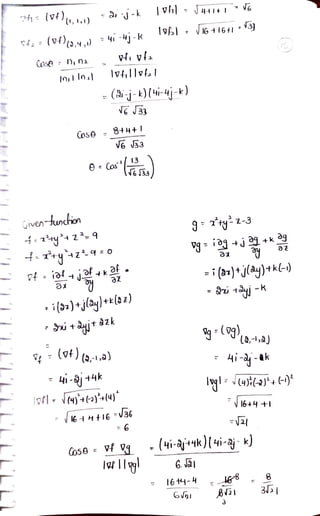 ∇f₁ = (∇f)(1,1,1) = 2i - j - k |∇f₁| = √4+1+1 = √6
∇f₂ = (∇f)(2,4,1) = 4i - 4j - k |∇f₂| = √16+16+1 = √33
Cosθ = n₁ n₂ / |n₁| |n₂| = ∇f₁ ∇f₂ / |∇f₁| |∇f₂|
= (2i - j - k)(4i - 4j - k) / √6 √33
Cosθ = 8+4+1 / √6 √33
θ = Cos⁻¹(13 / √6 √33)
Given function
f = x²+y²+z² = 9
f = x²+y²+z²-9 = 0
∇f = i ∂f/∂x + j ∂f/∂y + k ∂f/∂z =
= i(2x) + j(2y) + k(2z)
= 2xi + 2yj + 2zk
∇f = (∇f)(2,-1,2)
= 4i - 2j + 4k
|∇f| = √(4)²+(-2)²+(4)²
= √16+4+16 = √36
= 6
g = x²+y²-z-3
∇g = i ∂g/∂x + j ∂g/∂y + k ∂g/∂z
= i(2x) + j(2y) + k(-1)
= 2xi + 2yj - k
∇g = (∇g)(2,-1,2)
= 4i - 2j - k
|∇g| = √(4)²+(-2)²+(-1)²
= √16+4+1
= √21
Cosθ = ∇f ∇g / |∇f| |∇g| = (4i - 2j + 4k)(4i - 2j - k) / 6 √21
= 16+4-4 / 6√21 = 16 8 / 6√21 3 = 8 / 3√21